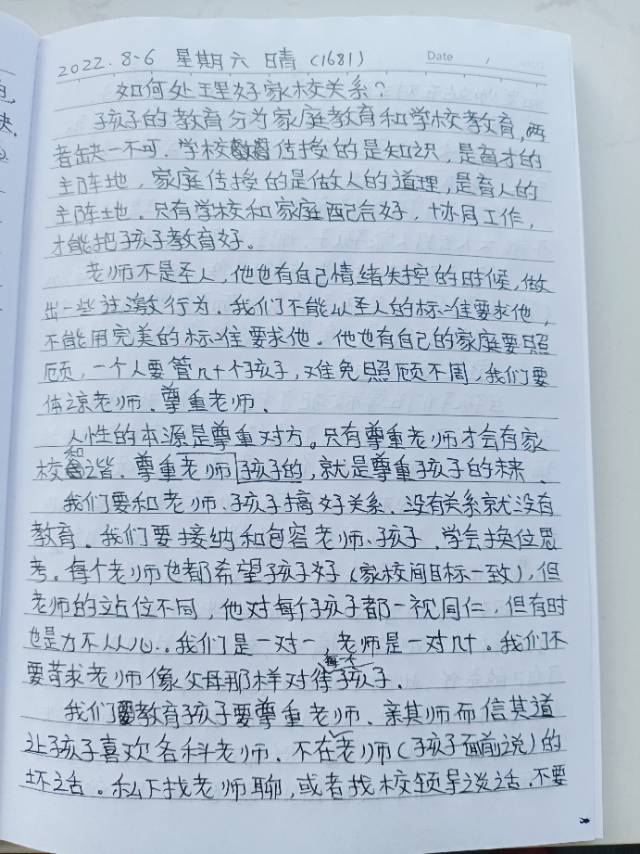 2022.8.6 星期六 晴(1681) Date /
如何处理好家校关系?
孩子的教育分为家庭教育和学校教育,两
者缺一不可。学校传授的是知识,是育才的
主阵地,家庭传授的是做人的道理,是育人的
主阵地。只有学校和家庭配合好,协同工作,
才能把孩子教育好。
老师不是圣人,他也有自己情绪失控的时候,做
出一些过激行为。我们不能以圣人的标准要求他,
不能用完美的标准要求他。他也有自己的家庭要照
顾,一个人要管几十个孩子,难免照顾不周,我们要
体谅老师、尊重老师。
人性的本源是尊重对方。只有尊重老师才会有家
校和谐。尊重老师孩子的,就是尊重孩子的未来。
我们要和老师、孩子搞好关系、没有关系就没有
教育。我们要接纳和包容老师、孩子,学会换位思
考。每个老师也都希望孩子好(家校间目标一致),但
老师的站位不同,他对每个孩子都一视同仁,但有时
也是力不从心。我们是一对一,老师是一对几十。我们不
要苛求老师像父母那样对待每个孩子。
我们要教育孩子要尊重老师、亲其师而信其道
让孩子喜欢各科老师。不在老师(孩子面前说)的
坏话。私下找老师聊,或者找校领导谈话,不要